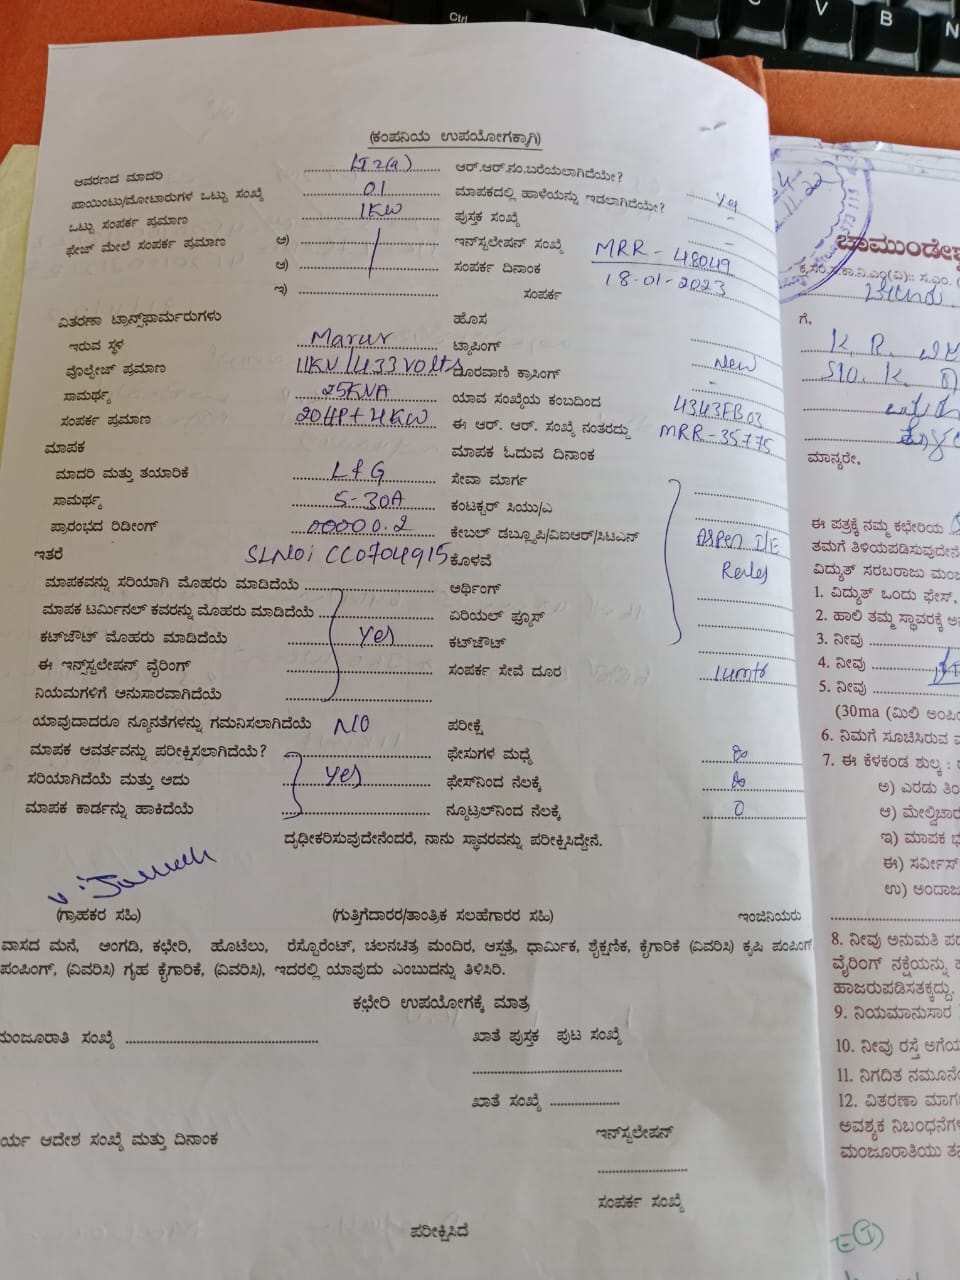 (ಕಂಪನಿಯ ಉಪಯೋಗಕ್ಕಾಗಿ)
ಆವರಣದ ಮಾದರಿ LT2(a) ಆರ್.ಆರ್.ನಂ.ಬರೆಯಲಾಗಿದೆಯೇ?
ಪಾಯಿಂಟು/ಮೋಟಾರುಗಳ ಒಟ್ಟು ಸಂಖ್ಯೆ 01 ಮಾಪಕದಲ್ಲಿ ಹಾಳೆಯನ್ನು ಇಡಲಾಗಿದೆಯೇ? Yes
ಒಟ್ಟು ಸಂಪರ್ಕ ಪ್ರಮಾಣ 1KW ಪುಸ್ತಕ ಸಂಖ್ಯೆ -
ಫೇಜ್ ಮೇಲೆ ಸಂಪರ್ಕ ಪ್ರಮಾಣ ಅ) ಇನ್‌ಸ್ಟಲೇಷನ್ ಸಂಖ್ಯೆ MRR - 48049
ಆ) ಸಂಪರ್ಕ ದಿನಾಂಕ 18-01-2023
ಇ) ಸಂಪರ್ಕ
ವಿತರಣಾ ಟ್ರಾನ್ಸ್‌ಫಾರ್ಮರುಗಳು ಹೊಸ
ಇರುವ ಸ್ಥಳ Marur ಟ್ಯಾಪಿಂಗ್ New
ವೊಲ್ಟೇಜ್ ಪ್ರಮಾಣ 11KV/433 volts ದೂರವಾಣಿ ಕ್ರಾಸಿಂಗ್ -
ಸಾಮರ್ಥ್ಯ 25KVA ಯಾವ ಸಂಖ್ಯೆಯ ಕಂಬದಿಂದ 4343FB03
ಸಂಪರ್ಕ ಪ್ರಮಾಣ 204P+4KW ಈ ಆರ್. ಆರ್. ಸಂಖ್ಯೆ ನಂತರದ್ದು MRR-35775
ಮಾಪಕ ಮಾಪಕ ಓದುವ ದಿನಾಂಕ
ಮಾದರಿ ಮತ್ತು ತಯಾರಿಕೆ L&G ಸೇವಾ ಮಾರ್ಗ
ಸಾಮರ್ಥ್ಯ 5-30A ಕಂಟಕ್ಟರ್ ಸಿಯು/ಎ
ಪ್ರಾರಂಭದ ರೀಡಿಂಗ್ 00000.2 ಕೇಬಲ್ ಡಬ್ಲ್ಯೂಪಿ/ವಿಐಆರ್/ಸಿಟಿಎನ್
ಇತರೆ SLNO: CC0704915 ಕೊಳವೆ
ಮಾಪಕವನ್ನು ಸರಿಯಾಗಿ ಮೊಹರು ಮಾಡಿದೆಯೆ ಅರ್ಥಿಂಗ್
ಮಾಪಕ ಟರ್ಮಿನಲ್ ಕವರನ್ನು ಮೊಹರು ಮಾಡಿದೆಯೆ ಏರಿಯಲ್ ಫ್ಯೂಸ್
ಕಟ್‌ಔಟ್ ಮೊಹರು ಮಾಡಿದೆಯೆ Yes ಕಟ್‌ಔಟ್
ಈ ಇನ್‌ಸ್ಟಲೇಷನ್ ವೈರಿಂಗ್ ಸಂಪರ್ಕ ಸೇವೆ ದೂರ
ನಿಯಮಗಳಿಗೆ ಅನುಸಾರವಾಗಿದೆಯೆ
ಯಾವುದಾದರೂ ನ್ಯೂನತೆಗಳನ್ನು ಗಮನಿಸಲಾಗಿದೆಯೆ NO ಪರೀಕ್ಷೆ
ಮಾಪಕ ಆವರ್ತವನ್ನು ಪರೀಕ್ಷಿಸಲಾಗಿದೆಯೆ? ಫೇಸುಗಳ ಮಧ್ಯೆ
ಸರಿಯಾಗಿದೆಯೆ ಮತ್ತು ಅದು Yes ಫೇಸ್‌ನಿಂದ ನೆಲಕ್ಕೆ
ಮಾಪಕ ಕಾರ್ಡನ್ನು ಹಾಕಿದೆಯೆ ನ್ಯೂಟ್ರಲ್‌ನಿಂದ ನೆಲಕ್ಕೆ 0
ದೃಢೀಕರಿಸುವುದೇನೆಂದರೆ, ನಾನು ಸ್ಥಾವರವನ್ನು ಪರೀಕ್ಷಿಸಿದ್ದೇನೆ.
(ಗ್ರಾಹಕರ ಸಹಿ) (ಗುತ್ತಿಗೆದಾರರ/ತಾಂತ್ರಿಕ ಸಲಹೆಗಾರರ ಸಹಿ) ಇಂಜಿನಿಯರು
ವಾಸದ ಮನೆ, ಅಂಗಡಿ, ಕಛೇರಿ, ಹೊಟೆಲು, ರೆಸ್ಟೊರೆಂಟ್, ಚಲನಚಿತ್ರ ಮಂದಿರ, ಆಸ್ಪತ್ರೆ, ಧಾರ್ಮಿಕ, ಶೈಕ್ಷಣಿಕ, ಕೈಗಾರಿಕೆ (ವಿವರಿಸಿ) ಕೃಷಿ ಪಂಪಿಂಗ್
ಪಂಪಿಂಗ್, (ವಿವರಿಸಿ) ಗೃಹ ಕೈಗಾರಿಕೆ, (ವಿವರಿಸಿ), ಇದರಲ್ಲಿ ಯಾವುದು ಎಂಬುದನ್ನು ತಿಳಿಸಿರಿ.
ಕಛೇರಿ ಉಪಯೋಗಕ್ಕೆ ಮಾತ್ರ
ಮಂಜೂರಾತಿ ಸಂಖ್ಯೆ ಖಾತೆ ಪುಸ್ತಕ ಪುಟ ಸಂಖ್ಯೆ
ಖಾತೆ ಸಂಖ್ಯೆ
ರ್ಯ ಆದೇಶ ಸಂಖ್ಯೆ ಮತ್ತು ದಿನಾಂಕ ಇನ್‌ಸ್ಟಲೇಷನ್
ಸಂಪರ್ಕ ಸಂಖ್ಯೆ
ಪರೀಕ್ಷಿಸಿದೆ
ಚಾಮುಂಡೇಶ್ವ
ಗೆ,
K. R.
S/O. K.
ಮಾನ್ಯರೇ,
ಈ ಪತ್ರಕ್ಕೆ ನಮ್ಮ ಕಛೇರಿಯ
ತಮಗೆ ತಿಳಿಯಪಡಿಸುವುದೇನೆ
ವಿದ್ಯುತ್ ಸರಬರಾಜು ಮಂಜ
1. ವಿದ್ಯುತ್ ಒಂದು ಫೇಸ್,
2. ಹಾಲಿ ತಮ್ಮ ಸ್ಥಾವರಕ್ಕೆ ಅ
3. ನೀವು
4. ನೀವು
5. ನೀವು
(30ma (ಮಿಲಿ ಅಂಪಿ
6. ನಿಮಗೆ ಸೂಚಿಸಿರುವ ವ
7. ಈ ಕೆಳಕಂಡ ಶುಲ್ಕ :
ಅ) ಎರಡು ತಿಂ
ಆ) ಮೇಲ್ವಿಚಾರ
ಇ) ಮಾಪಕ ಭ
ಈ) ಸರ್ವೀಸ್
ಉ) ಅಂದಾಜ
8. ನೀವು ಅನುಮತಿ ಪಡ
ವೈರಿಂಗ್ ನಕ್ಷೆಯನ್ನು ಹ
ಹಾಜರುಪಡಿಸತಕ್ಕದ್ದು.
9. ನಿಯಮಾನುಸಾರ
10. ನೀವು ರಸ್ತೆ ಅಗೆಯ
11. ನಿಗದಿತ ನಮೂನೆ
12. ವಿತರಣಾ ಮಾರ್ಗ
ಅವಶ್ಯಕ ನಿಬಂಧನೆಗಳ
ಮಂಜೂರಾತಿಯು ತ